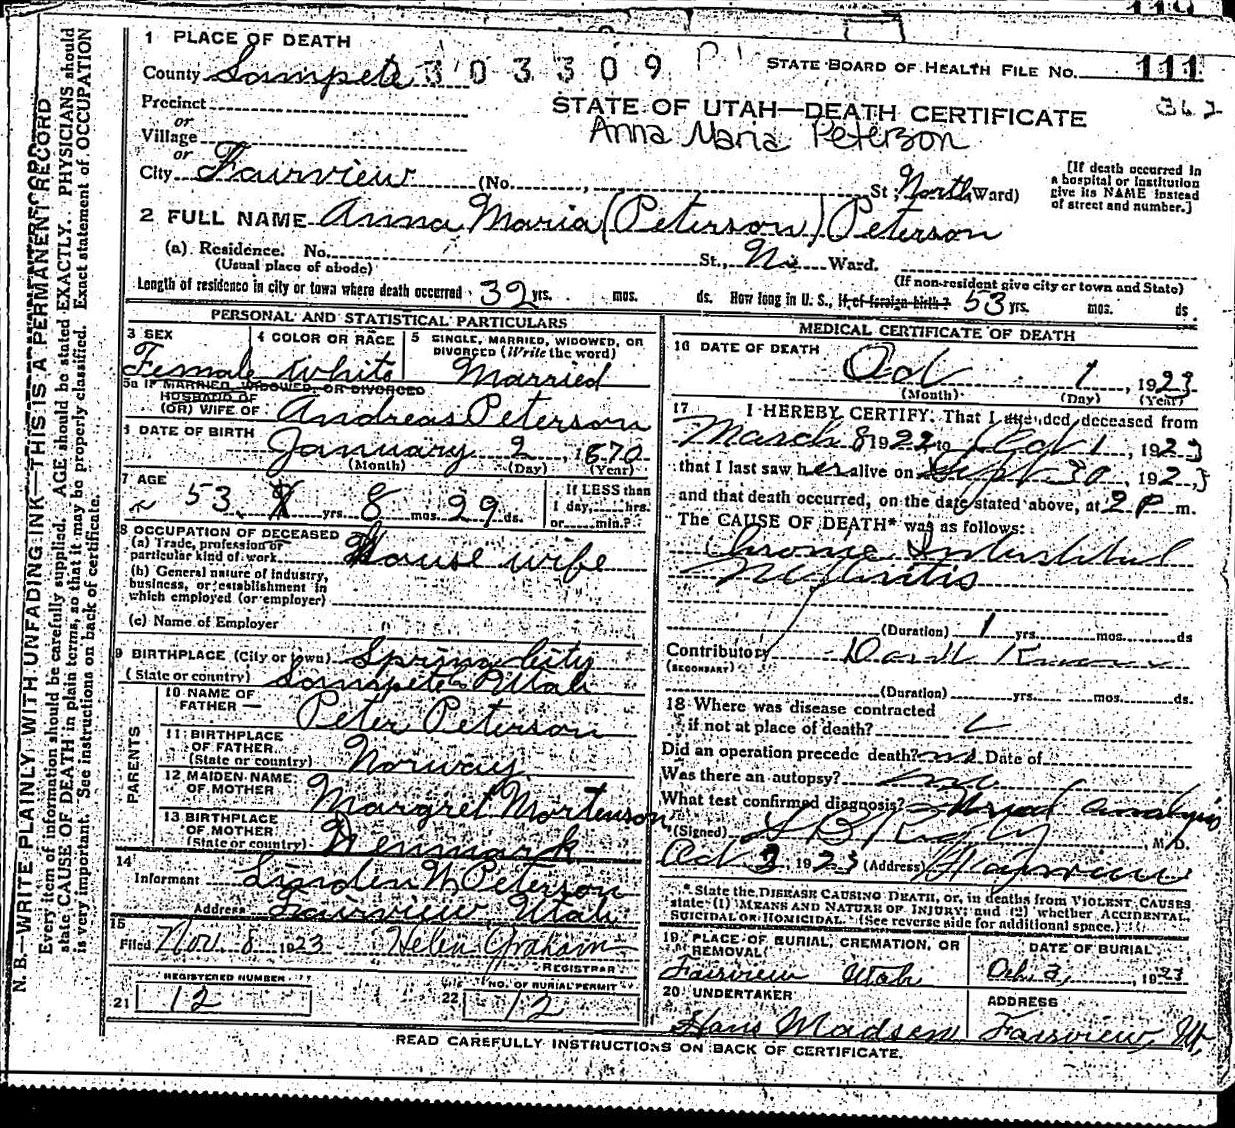 1 PLACE OF DEATH
County Sanpete 303309
STATE BOARD OF HEALTH FILE No. 111
362
Precinct
or
Village
or
STATE OF UTAH—DEATH CERTIFICATE
Anna Maria Peterson
City Fairview (No. , St; North Ward)
[If death occurred in a hospital or institution give its NAME instead of street and number.]
2 FULL NAME Anna Maria (Peterson) Peterson
(a) Residence. No. St., No Ward.
(Usual place of abode) (If non-resident give city or town and State)
Length of residence in city or town where death occurred 32 yrs. mos. ds. How long in U. S., if of foreign birth? 53 yrs. mos. ds.
PERSONAL AND STATISTICAL PARTICULARS
3 SEX
Female
4 COLOR OR RACE
White
5 SINGLE, MARRIED, WIDOWED, OR DIVORCED (Write the word)
Married
5a IF MARRIED, WIDOWED, OR DIVORCED
HUSBAND OF
(OR) WIFE OF Andreas Peterson
6 DATE OF BIRTH
January 2, 1870
(Month) (Day) (Year)
7 AGE
53 yrs. 8 mos. 29 ds.
If LESS than
1 day, hrs.
or min.?
8 OCCUPATION OF DECEASED
(a) Trade, profession or
particular kind of work House wife
(b) General nature of industry,
business, or establishment in
which employed (or employer)
(c) Name of Employer
9 BIRTHPLACE (City or town) Spring City
(State or country) Sanpete Utah
PARENTS
10 NAME OF
FATHER — Peter Peterson
11 BIRTHPLACE
OF FATHER
(State or country) Norway
12 MAIDEN NAME
OF MOTHER Margret Mortenson
13 BIRTHPLACE
OF MOTHER
(State or country) Denmark
14
Informant Linden W Peterson
Address Fairview Utah
15
Filed Nov. 8 1923 Helen Graham
REGISTRAR
REGISTERED NUMBER
21 12
NO. OF BURIAL PERMIT
22 12
MEDICAL CERTIFICATE OF DEATH
16 DATE OF DEATH
Oct 1, 1923
(Month) (Day) (Year)
17 I HEREBY CERTIFY, That I attended deceased from
March 8 1922 to Oct 1, 1923
that I last saw her alive on Sept 30, 1923
and that death occurred, on the date stated above, at 2 P m.
The CAUSE OF DEATH* was as follows:
Chronic Interstitial
Nephritis
(Duration) 1 yrs. mos. ds
Contributory
(SECONDARY)
(Duration) yrs. mos. ds.
18 Where was disease contracted
if not at place of death?
Did an operation precede death? no Date of
Was there an autopsy? no
What test confirmed diagnosis? analysis
(Signed) M.D.
Oct 3, 1923 (Address) Fairview
* State the DISEASE CAUSING DEATH, or, in deaths from VIOLENT CAUSES
state (1) MEANS AND NATURE OF INJURY; and (2) whether ACCIDENTAL,
SUICIDAL OR HOMICIDAL. (See reverse side for additional space.)
19 PLACE OF BURIAL, CREMATION, OR
REMOVAL
Fairview Utah
DATE OF BURIAL
Oct. 3, 1923
20 UNDERTAKER
Hans Madsen
ADDRESS
Fairview, Ut,
READ CAREFULLY INSTRUCTIONS ON BACK OF CERTIFICATE.
N. B.—WRITE PLAINLY, WITH UNFADING INK—THIS IS A PERMANENT RECORD
Every item of information should be carefully supplied. AGE should be stated EXACTLY. PHYSICIANS should
state CAUSE OF DEATH in plain terms, so that it may be properly classified. Exact statement of OCCUPATION
is very important. See instructions on back of certificate.